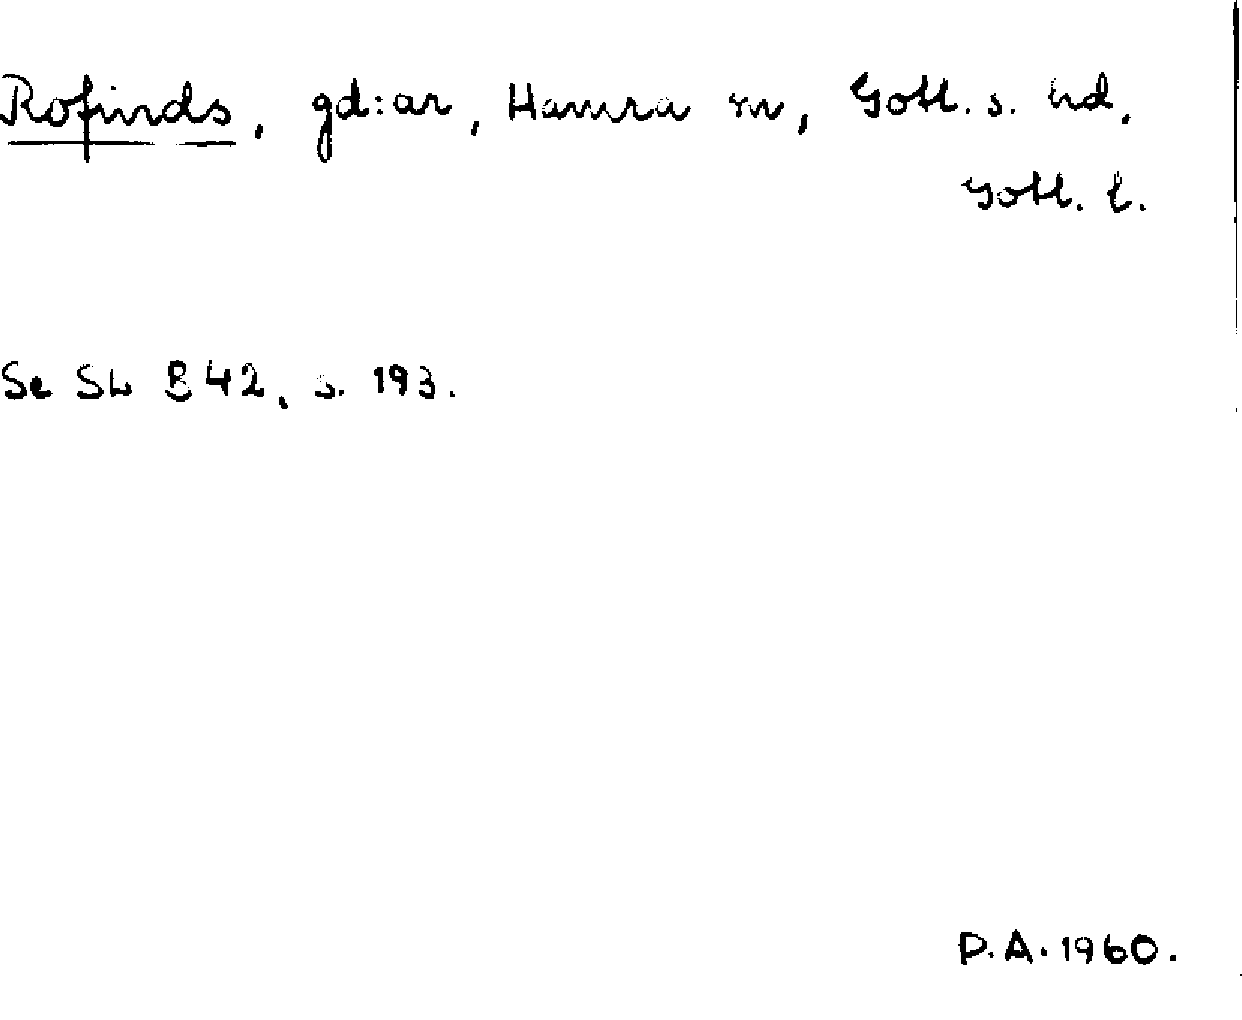 Rofinds, gd:ar, Hamra sn, Gotl. s. hd,
Gotl. l.
Se SL B 42, s. 193.
P.A. 1960.